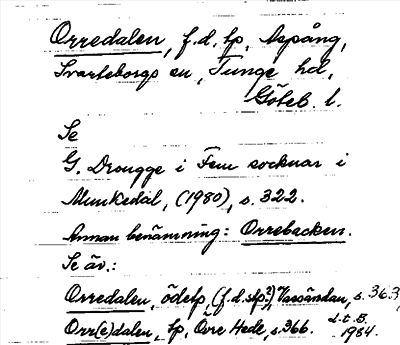 Orredalen, f.d. tp, Aspång,
Svarteborgs sn, Tunge hd,
Göteb. l.
Se
G. Drougge i Fem socknar i
Munkedal, (1980), s. 322.
Annan benämning: Orrebacken.
Se äv.:
Orredalen, ödetp, (f.d. stp.?), Vassändan, s. 363,
Orr(e)dalen, tp, Övre Hede, s. 366.
1984.